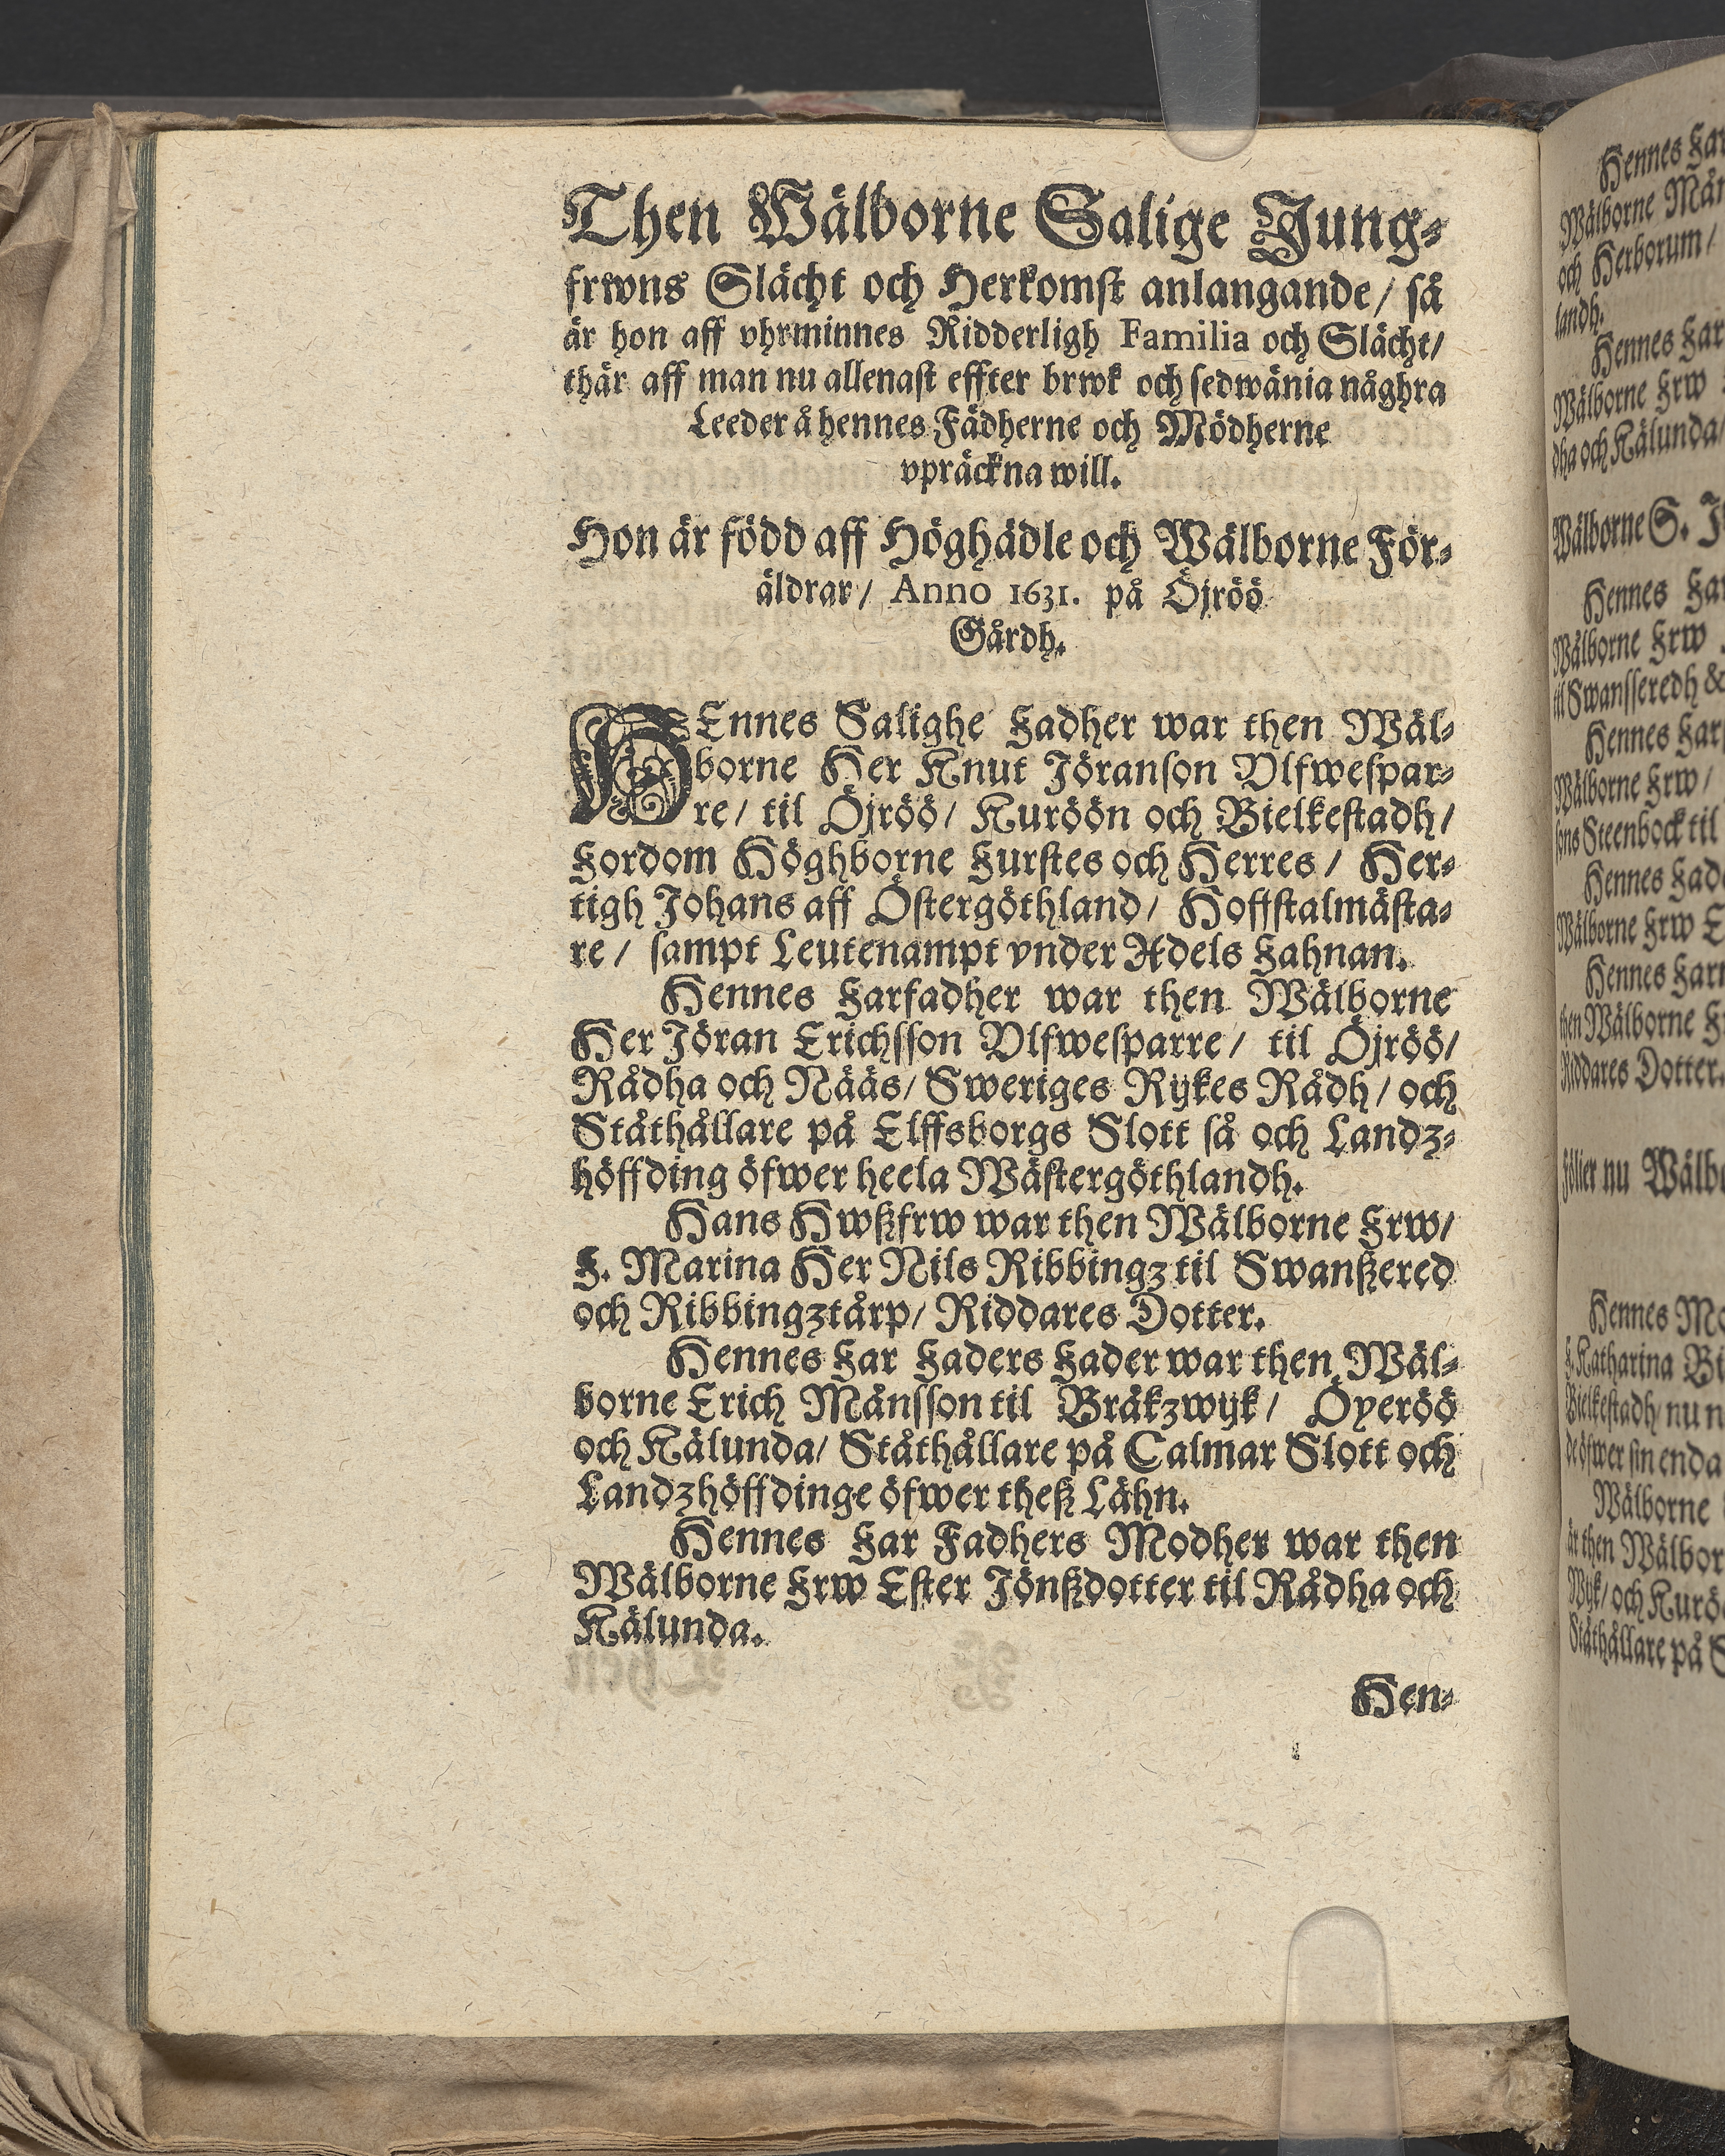 Then Wälborne Salige Jung-
frwns Slächt och Herkomst anlangande/ så
är hon aff vhrminnes Ridderligh Familia och Slächt/
thär aff man nu allenast effter brwk och sedwänia någhra
Leeder å hennes Fädherne och Mödherne
vpräckna will.
Hon är född aff Höghädle och Wälborne För-
äldrar/ Anno 1631. på Öjröö
Gårdh.
HEnnes Salighe Fadher war then Wäl-
borne Her Knut Jöranson Vlfwespar-
re/ til Öjröö/ Kuröön och Bielkestadh/
Fordom Höghborne Furstes och Herres/ Her-
tigh Johans aff Östergöthland/ Hoffstalmästa-
re/ sampt Leutenampt vnder Adels Fahnan.
Hennes Farfadher war then Wälborne
Her Jöran Erichsson Vlfwesparre/ til Öjröö/
Rådha och Nääs/ Sweriges Rijkes Rådh/ och
Ståthållare på Elffsborgs Slott så och Landz-
höffding öfwer heela Wästergöthlandh.
Hans Hwßfrw war then Wälborne Frw/
F. Marina Her Nils Ribbingz til Swanßered
och Ribbingztårp/ Riddares Dotter.
Hennes Far Faders Fader war then Wäl-
borne Erich Månsson til Bråkzwijk/ Öyeröö
och Kälunda/ Ståthållare på Calmar Slott och
Landzhöffdinge öfwer theß Lähn.
Hennes Far Fadhers Modher war then
Wälborne Frw Ester Jönßdotter til Rådha och
Kälunda.
Hen-
Hennes
Wälborne
och Herborum/
landh.
Hennes
Wälborne Frw
dha och Kälunda/
Wälborne S.
Hennes
Wälborne Frw
til Swansseredh &
Hennes
Wälborne Frw/
sons Steenbock til
Hennes
Wälborne Frw
Hennes
then Wälborne
Riddares Dotter.
nu
Hennes
F. Katharina
Bielkestadh/ nu
öfwer sin enda
Wälborne
är then
och
Ståthållare på